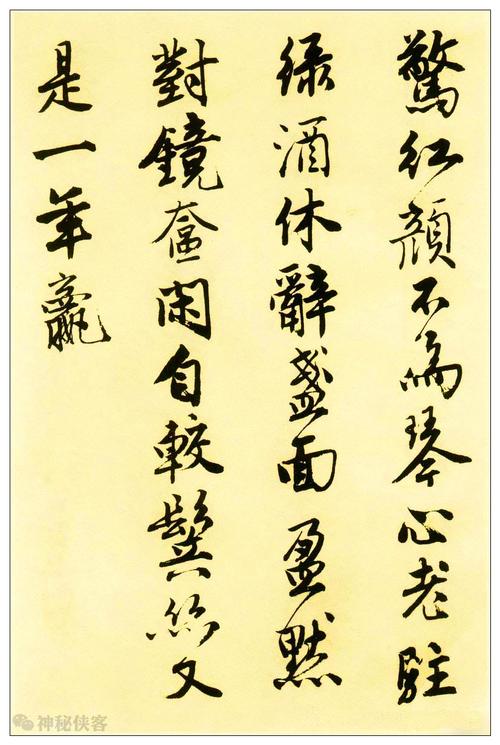 驚紅顏不為琴心老駐
綠酒休辭盞面盈默
對鏡奩閑自較鬢絲又
是一年贏
神秘侠客